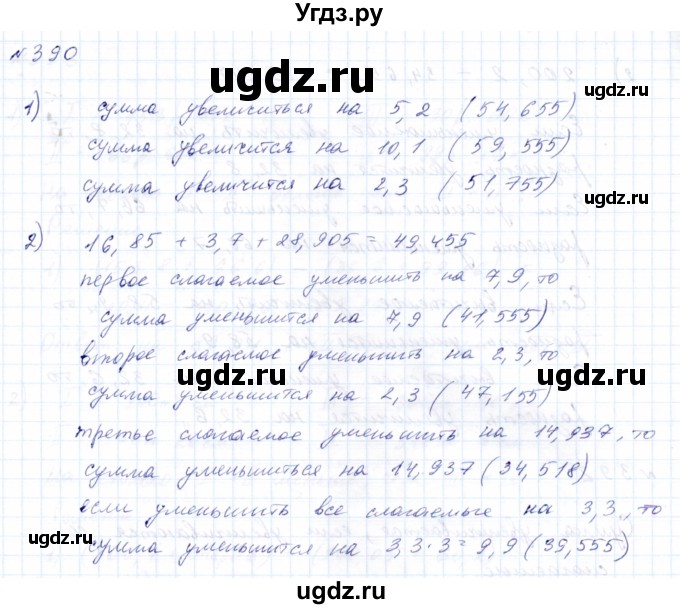 Угдз.ру
№390
ugdz.ru
1) сумма увеличиться на 5,2 (54,655)
сумма увеличится на 10,1 (59,555)
ugdz.ru
сумма увеличится на 2,3 (51,755)
ugdz.ru
2) 16,85 + 3,7 + 28,905 = 49,455
первое слагаемое уменьшить на 7,9, то
сумма уменьшится на 7,9 (41,555)
ugdz.ru
второе слагаемое уменьшить на 2,3, то
ugdz.ru
сумма уменьшится на 2,3 (47,155)
третье слагаемое уменьшить на 14,937, то
сумма уменьшиться на 14,937 (34,518)
ugdz.ru
если уменьшить все слагаемые на 3,3, то
ugdz.ru
сумма уменьшится на 3,3·3=9,9 (39,555)
ugdz.ru